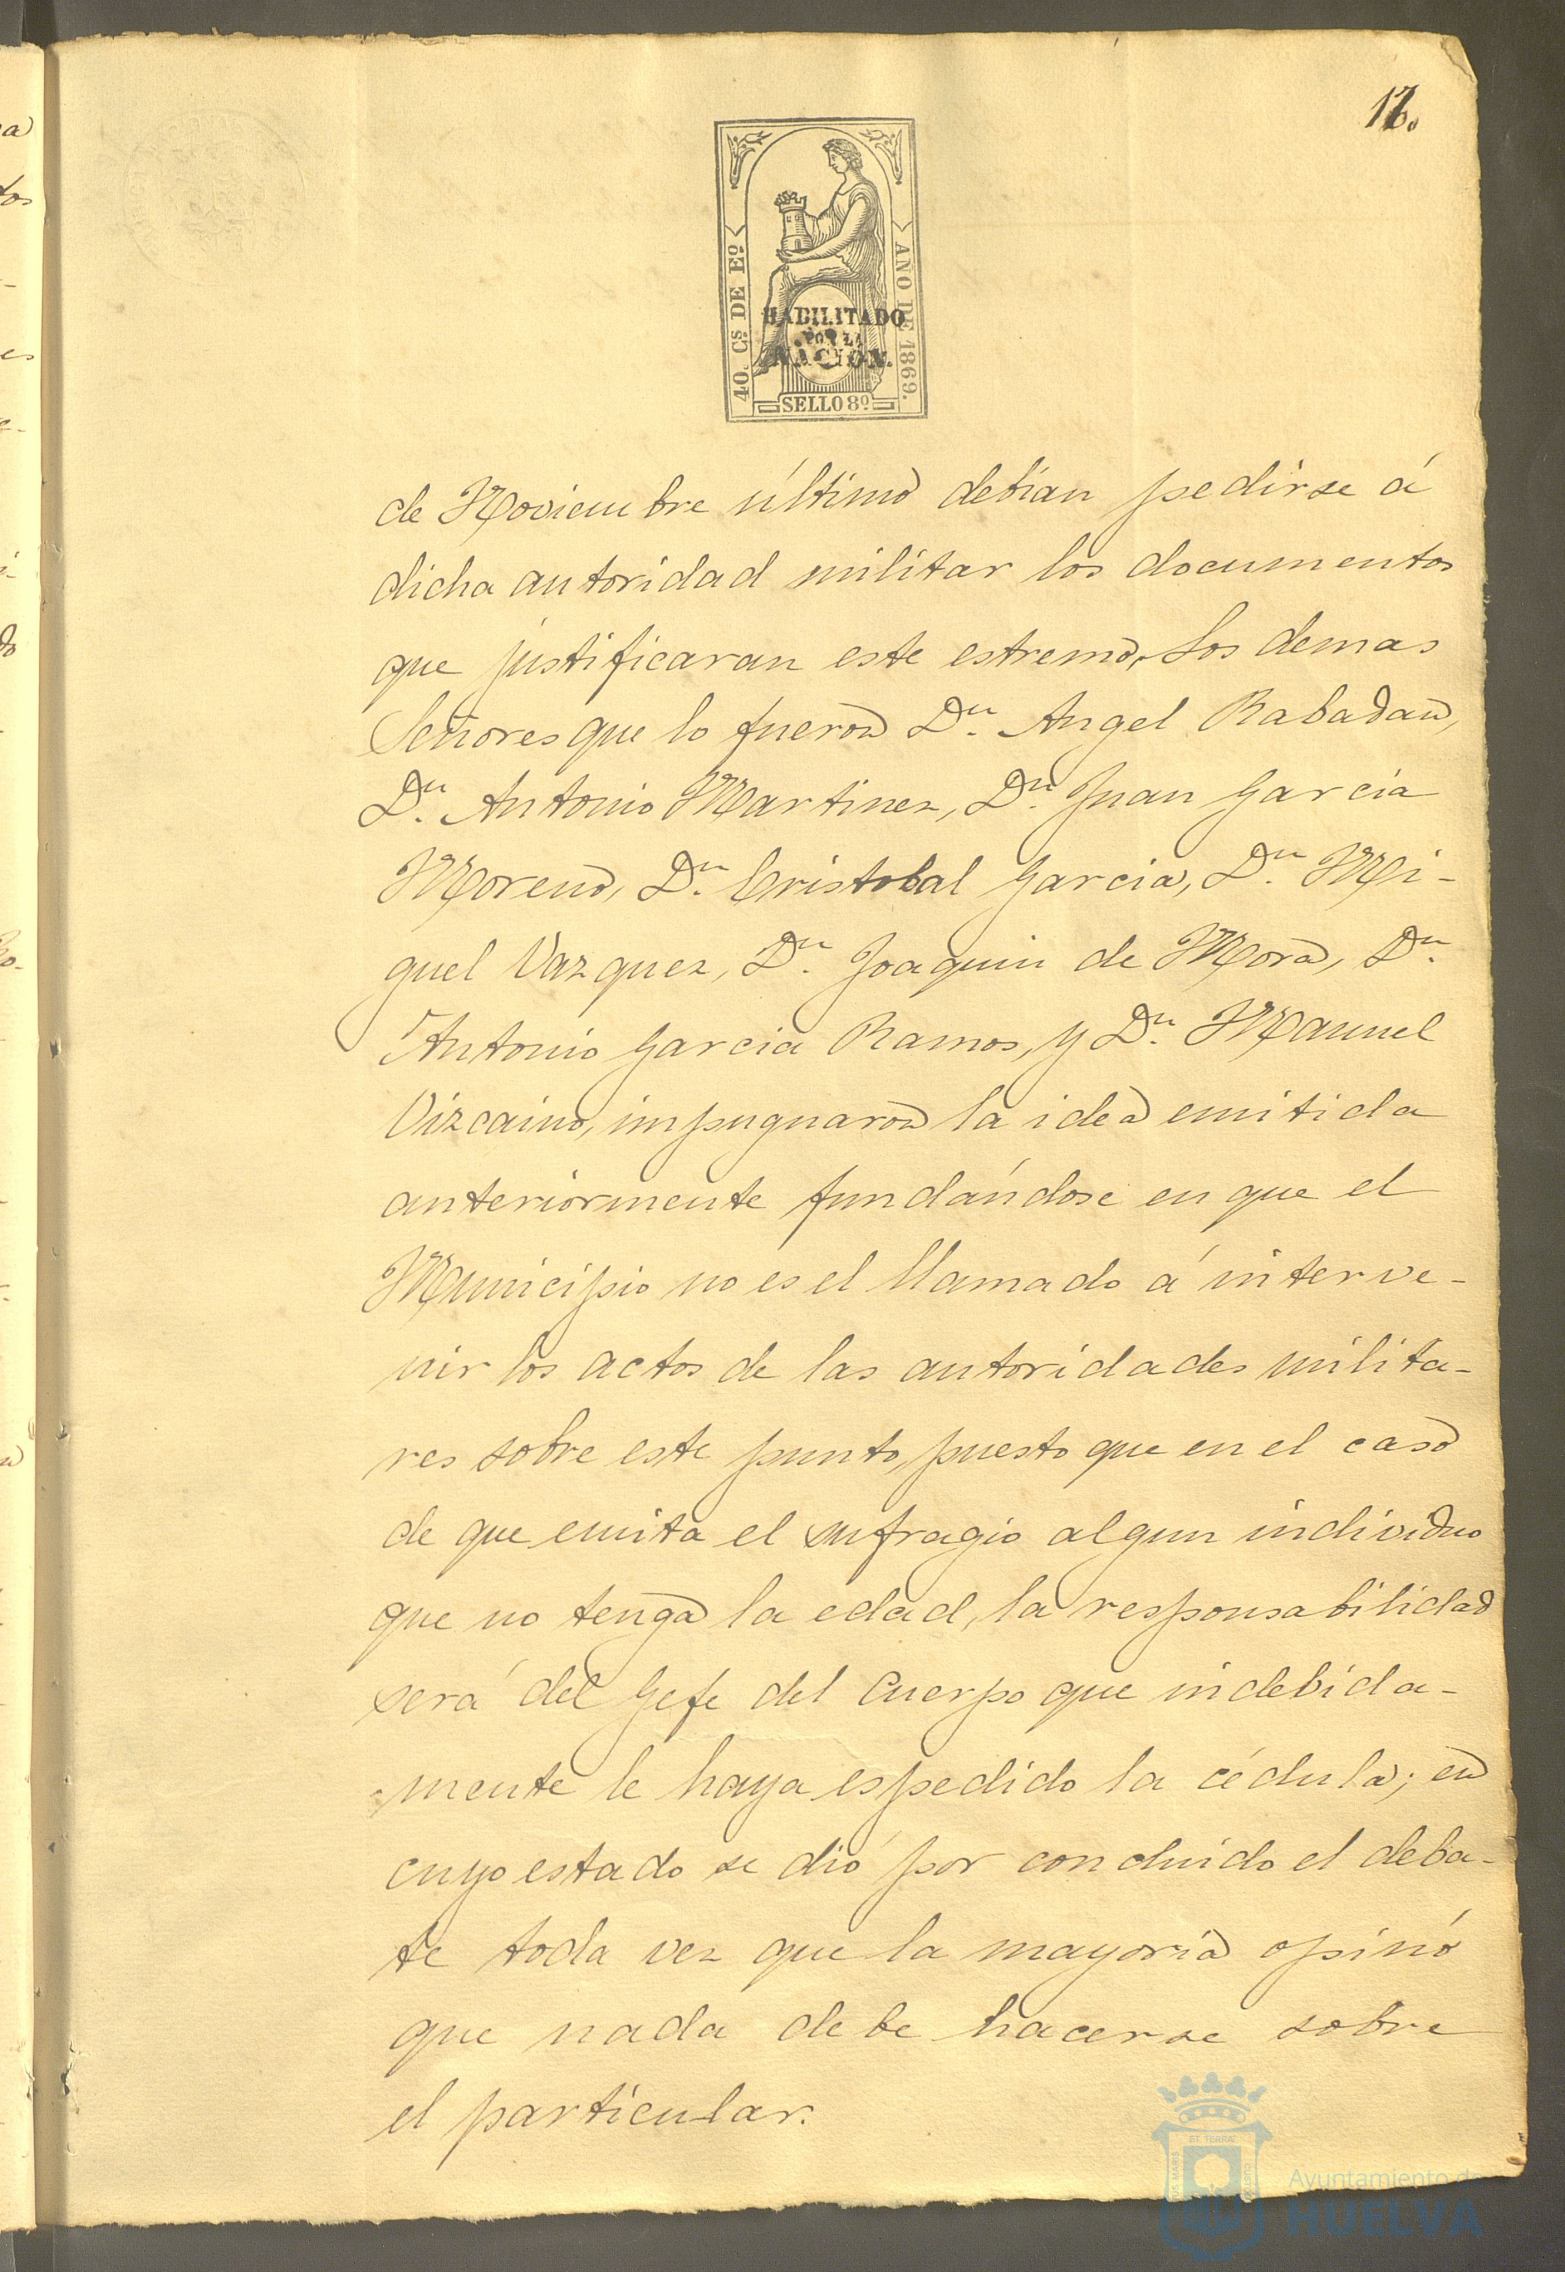 17.
40. Cs DE Eo.
AÑO DE 1869.
HABILITADO
POR LA
NACION.
SELLO 8º
de Noviembre último debian pedirse á
dicha autoridad militar los documentos
que justificaran este estremo. Los demas
Señores que lo fueron Dn. Angel Rabadan,
Dn. Antonio Martinez, Dn. Juan Garcia
Moreno, Dn. Cristobal Garcia, Dn. Mi-
guel Vazquez, Dn. Joaquin de Mora, Dn.
Antonio Garcia Ramos, y Dn. Manuel
Vizcaino, impugnaron la idea emitida
anteriormente fundándose en que el
Municipio no es el llamado á interve-
nir los actos de las autoridades milita-
res sobre este punto, puesto que en el caso
de que emita el sufragio algun individuo
que no tenga la edad, la responsabilidad
será del Gefe del Cuerpo que indebida-
mente le haya espedido la cédula; en
cuyo estado se dió por concluido el deba-
te toda vez que la mayoria opinó
que nada debe hacerse sobre
el particular.
Ayuntamiento de
HUELVA